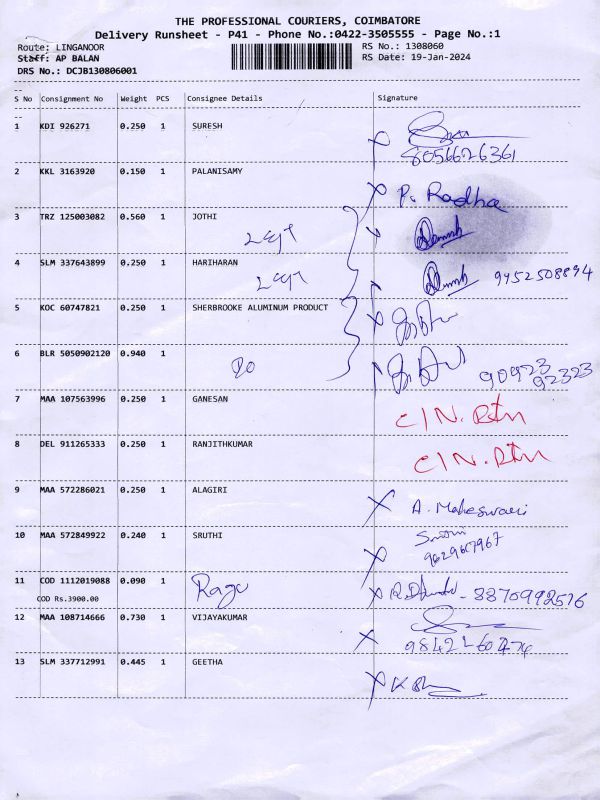 THE PROFESSIONAL COURIERS, COIMBATORE
Delivery Runsheet - P41 - Phone No.:0422-3505555 - Page No.:1
Route: LINGANOOR RS No.: 1308060
Staff: AP BALAN RS Date: 19-Jan-2024
DRS No.: DCJB130806001
S No Consignment No Weight PCS Consignee Details Signature
1 KDI 926271 0.250 1 SURESH
8056626361
2 KKL 3163920 0.150 1 PALANISAMY P. Radha
3 TRZ 125003082 0.560 1 JOTHI
4 SLM 337643899 0.250 1 HARIHARAN
9952508894
5 KOC 60747821 0.250 1 SHERBROOKE ALUMINUM PRODUCT
6 BLR 5050902120 0.940 1
90923
92323
7 MAA 107563996 0.250 1 GANESAN C/N. Rtn
8 DEL 911265333 0.250 1 RANJITHKUMAR C/N. Rtn
9 MAA 572286021 0.250 1 ALAGIRI A. Maheswari
10 MAA 572849922 0.240 1 SRUTHI
11 COD 1112019088 0.090 1 Raju 8870992516
COD Rs.3900.00
12 MAA 108714666 0.730 1 VIJAYAKUMAR
9842160474
13 SLM 337712991 0.445 1 GEETHA